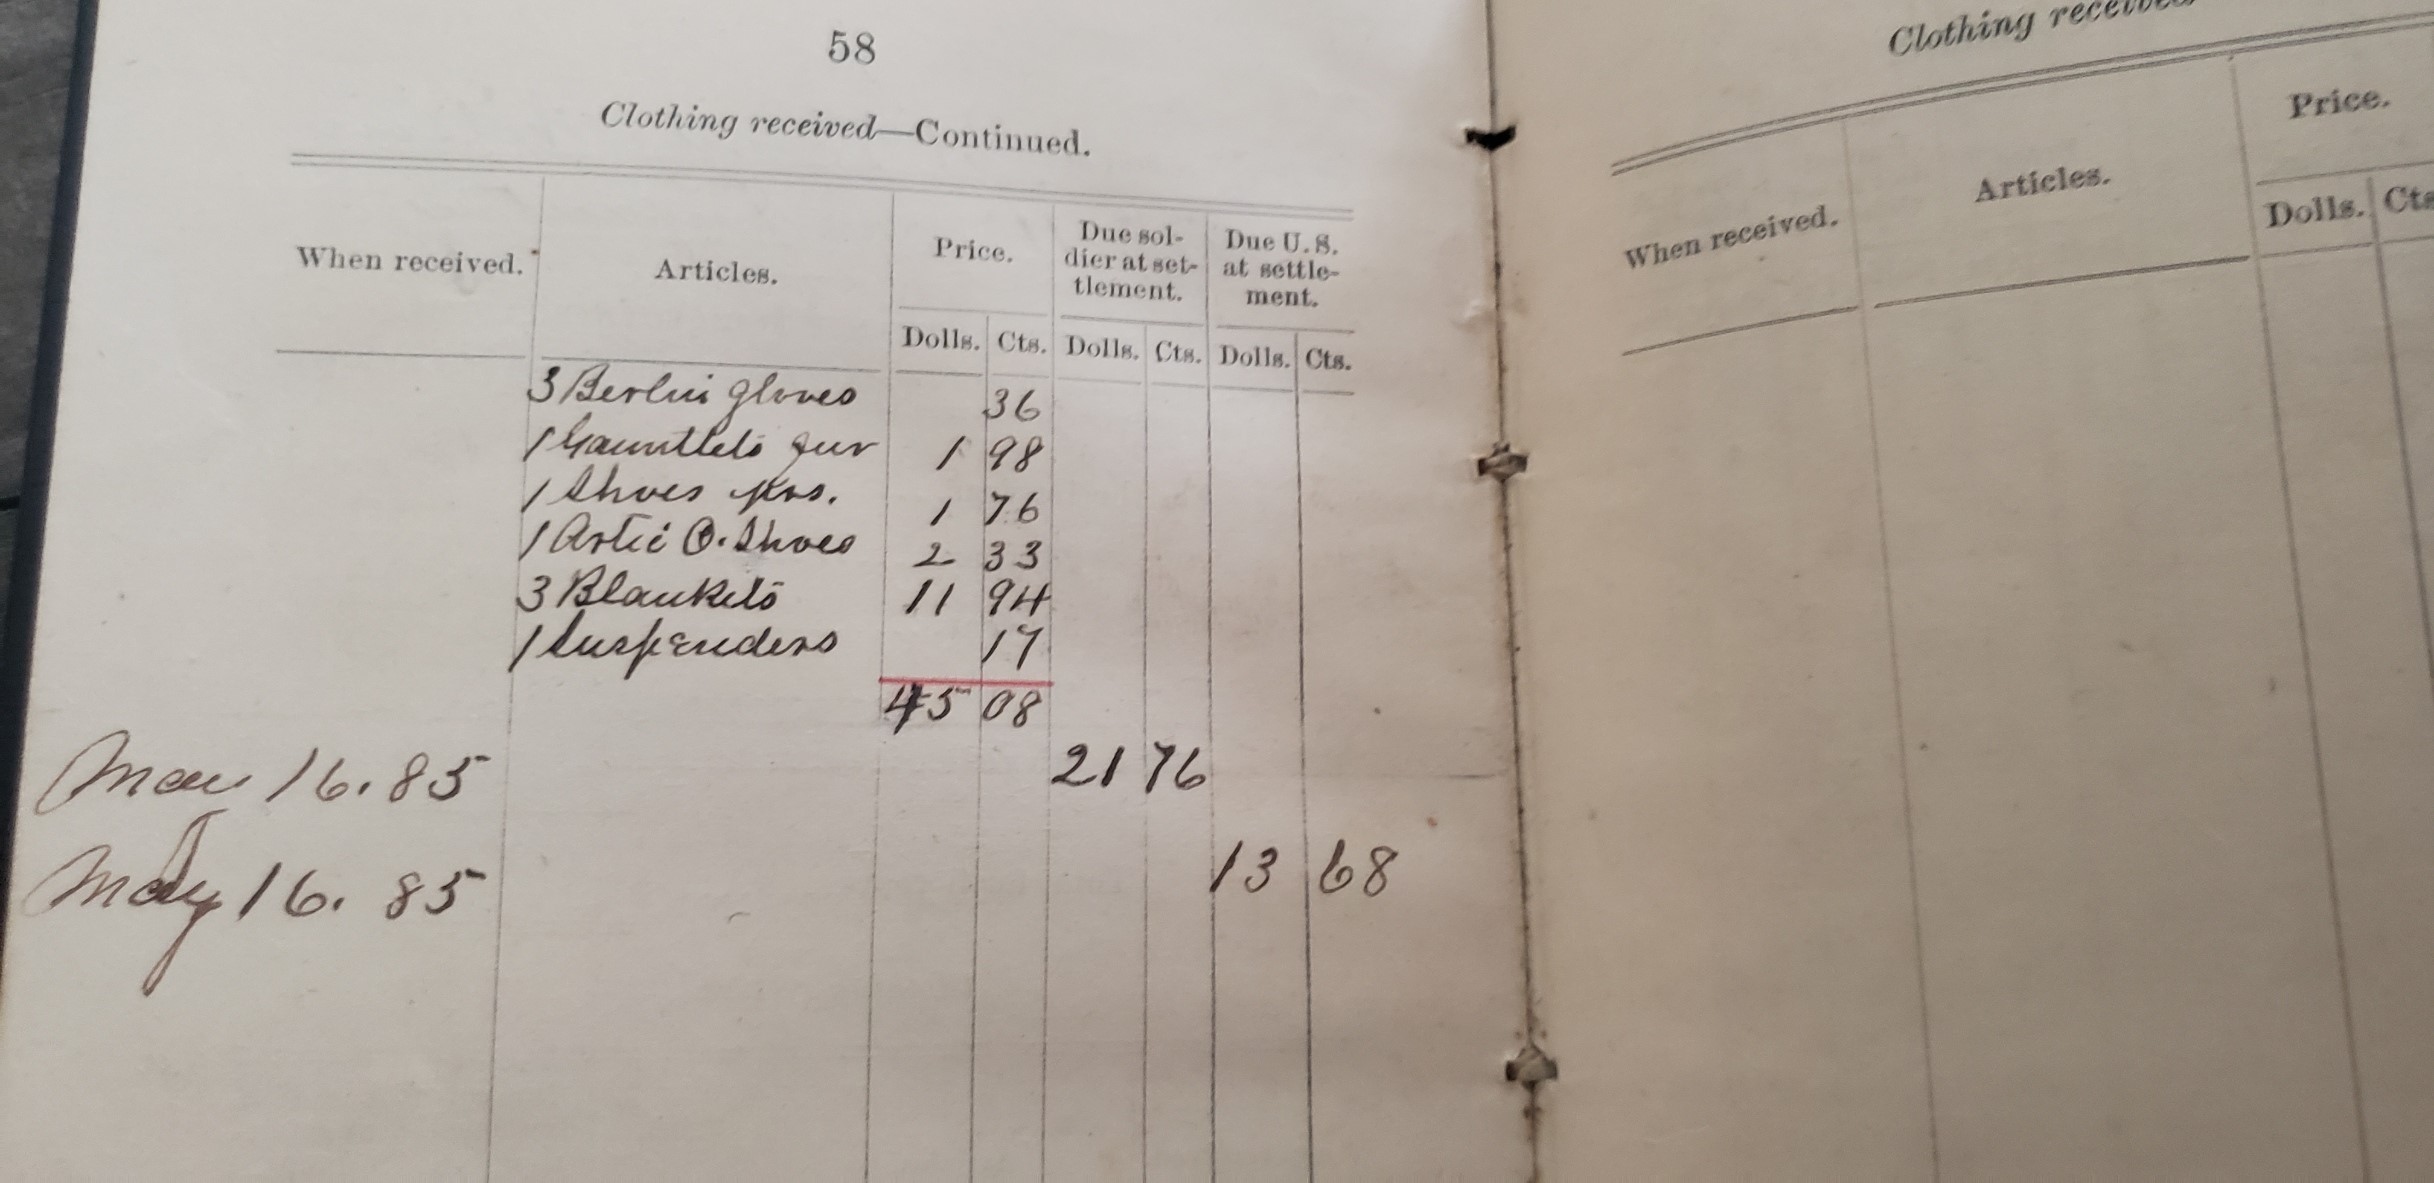 58
Clothing received—Continued.
When received. Articles. Price. Due sol-dier at set-tlement. Due U.S. at settle-ment.
Dolls. Cts. Dolls. Cts. Dolls. Cts.
3 Berlin gloves 36
1 Gauntlets fur 1 98
1 Shoes prs. 1 76
1 Artic O. Shoes 2 33
3 Blankets 11 94
1 Suspenders 17
45 08
16. 85 21 76
May 16. 85 13 68
Clothing received
When received. Articles. Price.
Dolls. Cts